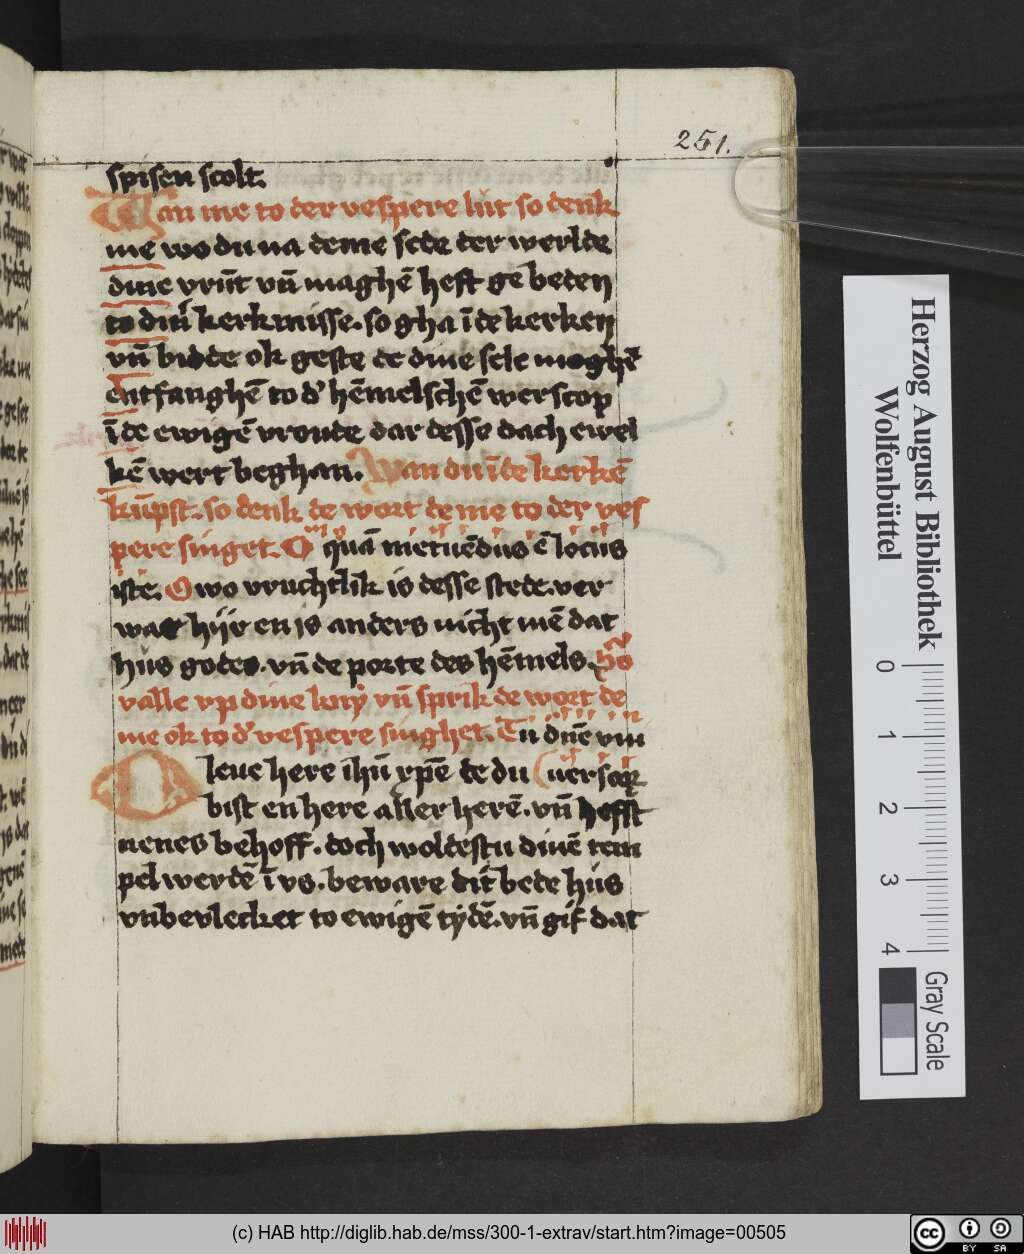 251.
spisen scolt.
Wan me to der vespere lut so denk
me wo du na deme sede der werlde
dine vrūt vn̄ maghē heft ge beden
to dinˀ kerkmisse. so gha ī de kerken
vn̄ bidde ok geste de dine sele mogħē
entfanghē to dˀ hēmelschē werscop
ī de ewigē vroude dar desse dach ewel
kē wert beghan. Wan du ī de kerkē
kūpst. so denk de wort de me to der ves
pere singet. O quā metuēdus ē locus
iste. O wo vruchtlik is desse stede. ver
war hijr en is anders nicht mē dat
hus godes. vn̄ de porte des hēmels. So
valle vp dine kny vn̄ sprik de wort de
me ok to dˀ vespere singhet. Tu dn̄e vni
O leue here ihū xp̄e de du (uersorꝝ
bist en here aller herē. vn̄ hefft
nenes behoff. doch woldestu dinē tem
pel werdē ī vs. beware dit bede hus
vnbevlecket to ewigē tydē. vn̄ gif dat
Herzog August Bibliothek
Wolfenbüttel
0 1 2 3 4
Gray Scale
(c) HAB http://diglib.hab.de/mss/300-1-extrav/start.htm?image=00505
cc BY SA